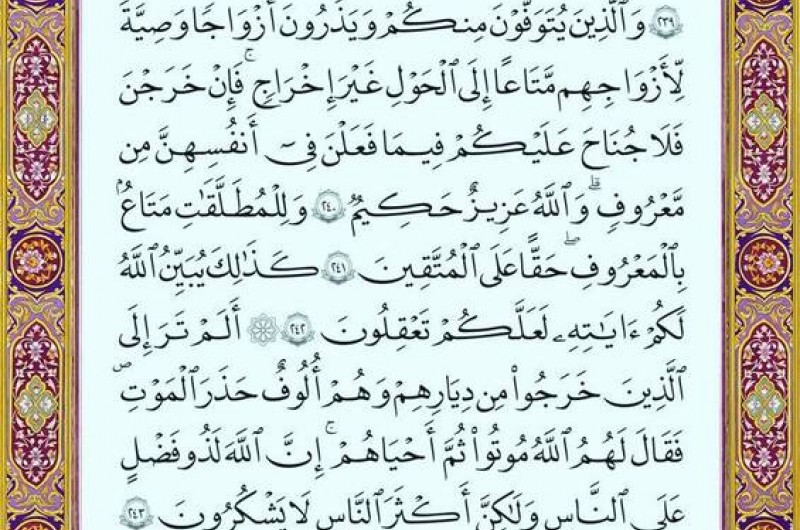 ٢٣٩ وَٱلَّذِينَ يُتَوَفَّوْنَ مِنكُمْ وَيَذَرُونَ أَزْوَٰجًا وَصِيَّةً
لِّأَزْوَٰجِهِم مَّتَٰعًا إِلَى ٱلْحَوْلِ غَيْرَ إِخْرَاجٍ ۚ فَإِنْ خَرَجْنَ
فَلَا جُنَاحَ عَلَيْكُمْ فِى مَا فَعَلْنَ فِىٓ أَنفُسِهِنَّ مِن
مَّعْرُوفٍ ۗ وَٱللَّهُ عَزِيزٌ حَكِيمٌ ٢٤٠ وَلِلْمُطَلَّقَٰتِ مَتَٰعٌۢ
بِٱلْمَعْرُوفِ ۖ حَقًّا عَلَى ٱلْمُتَّقِينَ ٢٤١ كَذَٰلِكَ يُبَيِّنُ ٱللَّهُ
لَكُمْ ءَايَٰتِهِۦ لَعَلَّكُمْ تَعْقِلُونَ ٢٤٢ ۞ أَلَمْ تَرَ إِلَى
ٱلَّذِينَ خَرَجُوا۟ مِن دِيَٰرِهِمْ وَهُمْ أُلُوفٌ حَذَرَ ٱلْمَوْتِ
فَقَالَ لَهُمُ ٱللَّهُ مُوتُوا۟ ثُمَّ أَحْيَٰهُمْ ۚ إِنَّ ٱللَّهَ لَذُو فَضْلٍ
عَلَى ٱلنَّاسِ وَلَٰكِنَّ أَكْثَرَ ٱلنَّاسِ لَا يَشْكُرُونَ ٢٤٣